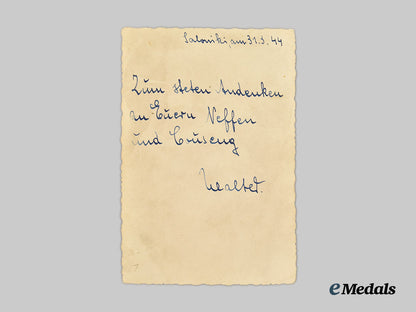 Saloniki am 31.3.44
Zum steten Andenken
an Euern Neffen
und Cruseng
Walter.
eMedals